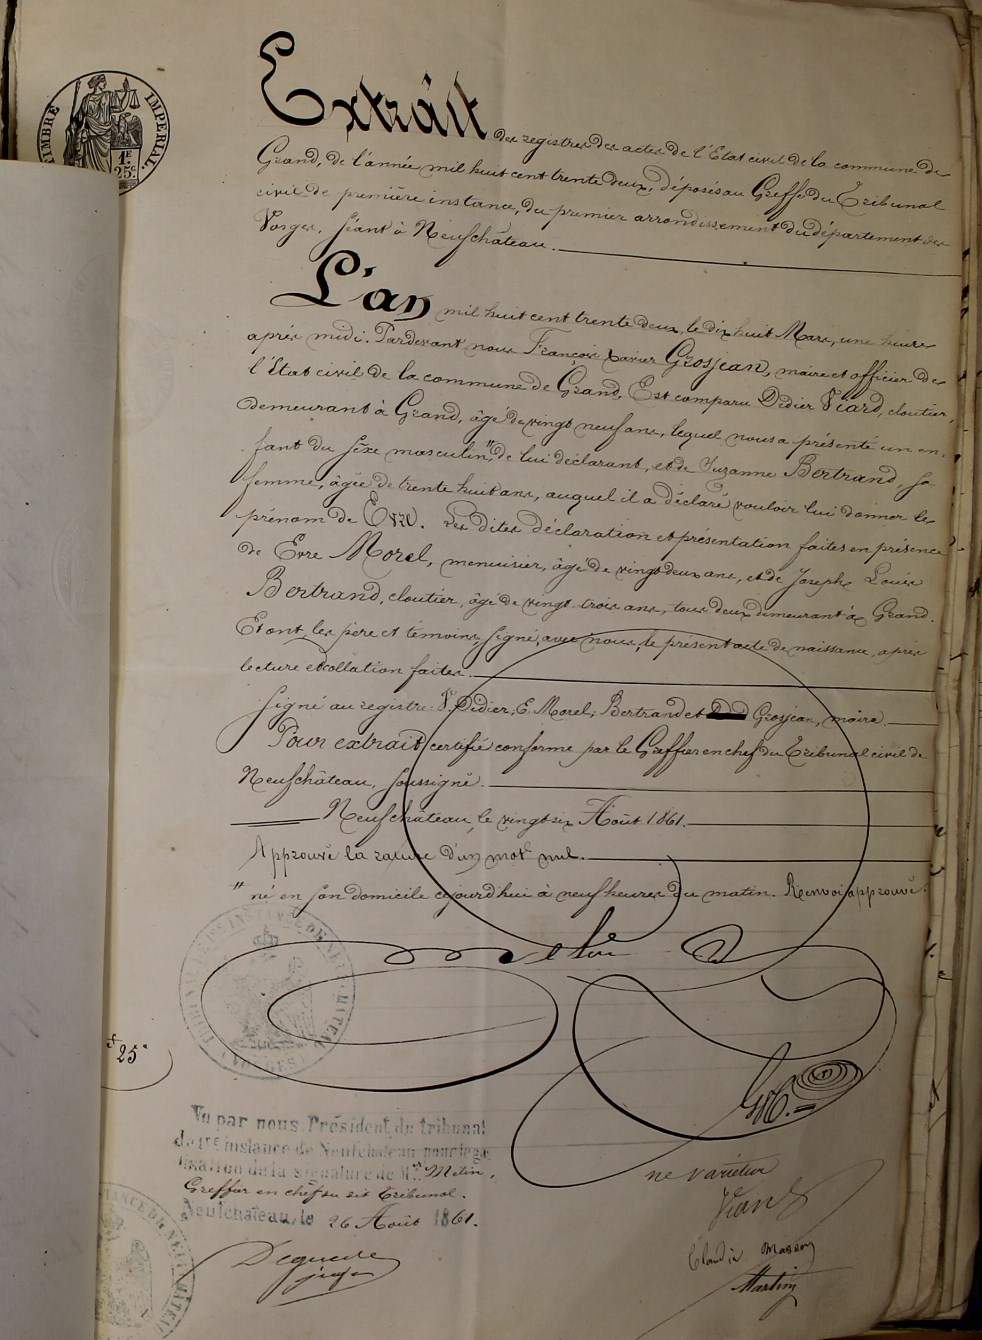 TIMBRE IMPERIAL.
1F.
25c
Extrait des registres des actes de l'Etat civil de la commune de
Grand, de l'année mil huit cent trente deux, déposés au Greffe du Tribunal
civil de première instance, du premier arrondissement du département des
Vosges, séant à Neufchâteau.
L'an mil huit cent trente deux, le dix huit Mars, une heure
après midi. Pardevant nous François Xavier Grosjean, maire et officier de
l'Etat civil de la commune de Grand, Est comparu Didier Viard, cloutier,
demeurant à Grand, âgé de vingt neuf ans, lequel nous a présenté un en-
fant du sexe masculin, " de lui déclarant, et de Suzanne Bertrand, sa
femme, âgée de trente huit ans, auquel il a déclaré vouloir lui donner le
prénom de Evre. Les dites déclaration et présentation faites en présence
de Evre Morel, menuisier, âgé de vingt deux ans, et de Joseph Louis
Bertrand, cloutier, âgé de vingt-trois ans, tous deux demeurant à Grand.
Et ont, les père et témoins, signé, avec nous, le présent acte de naissance, après
lecture et collation faites.
Signé au registre: V. Didier, E. Morel, Bertrand et Grosjean, maire.
Pour extrait certifié conforme par le Greffier en chef du Tribunal civil de
Neufchâteau, soussigné.
Neufchâteau, le vingt six Août 1861.
Approuvé la rature d'un mot nul.
" né en son domicile cejourd'hui à neuf heures du matin. Renvoi approuvé.
TRIBUNAL DE 1re INSTANCE DE NEUFCHATEAU
(VOSGES)
25c
Vu par nous, Président du tribunal
de 1re instance de Neufchâteau pour légalisation
de la signature de Mr. Metin,
Greffier en chef du dit Tribunal.
Neufchateau, le 26 Août 1861.
ne varietur
Viard
Claudie Masson
Martin